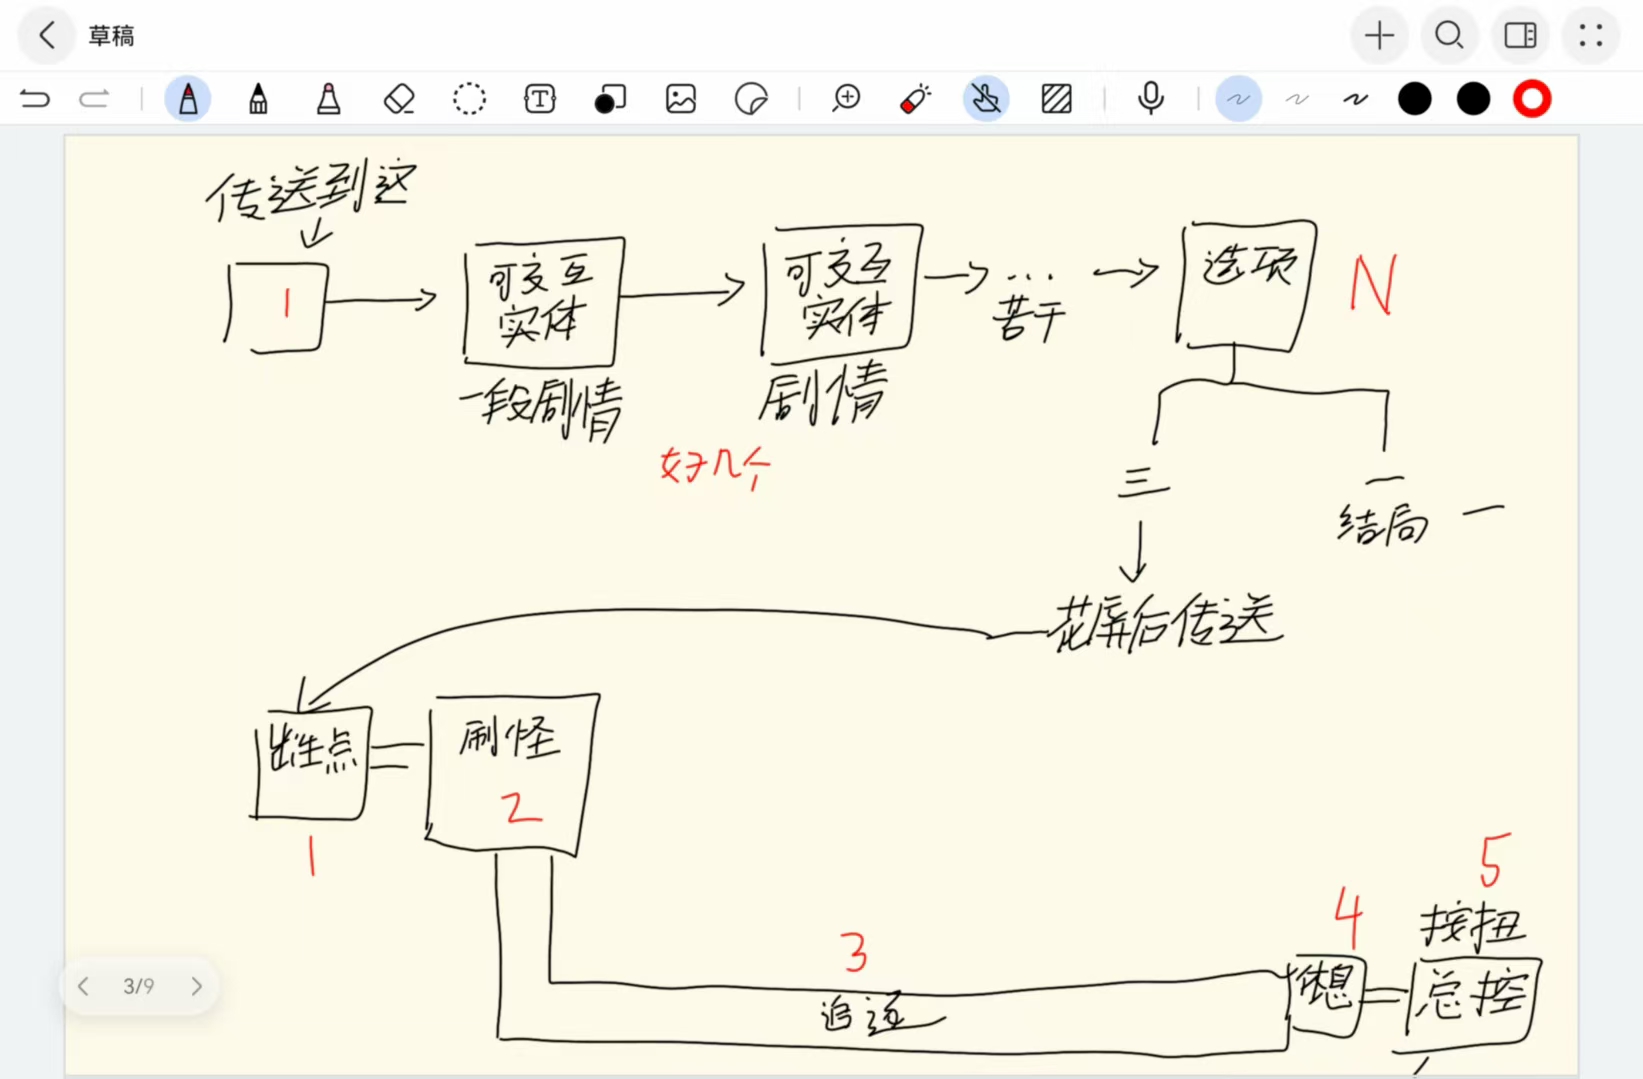 草稿
传送到这
1
可交互
实体
一段剧情
可交互
实体
剧情
好几个
...
若干
选项
N
三
一
结局 一
花屏后传送
出生点
1
刷怪
2
3
追逐
4
休息
5
按扭
总控
3/9